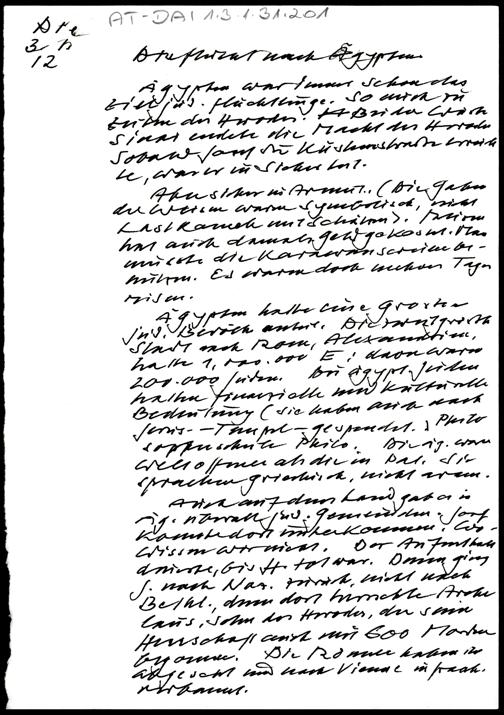 Die
3 n
12
AT-DAI 1.3.1.31.201
Die flucht nach Ägypten
Ägypten war immer schon das
Ziel jüd. Flüchtlinge. So auch zu
Zeiten des Herodes. Bei der Wüste
Sinai endete die Macht des Herodes
Sobald Josef die Küstenstraße erreich
te, war er in Sicherheit.
Aber sicher in Armut. (Die Gaben
der Weisen waren symbolisch, nicht
Lastkamele mit Schätzen). Reisen
hat auch damals geld gekostet. Man
musste die Karawanserein be-
nützen. Es waren doch mehrere Tage
reisen.
Ägypten hatte eine grosse
jüd. Bevölk. Die zweitgrösste
Stadt nach Rom, Alexandrien,
hatte 1,000.000 E; davon waren
200.000 Juden. Die Ägypt. Juden
hatten finanzielle und kulturelle
Bedeutung (sie haben auch nach
Jerus. - Tempel - gespendet.) Philo
Philo. Die äg. waren
weltoffener als die in Pal. Sie
sprachen griechisch, nicht aram.
Auch auf dem Land gab es in
äg. überall jüd. Gemeinden. Josef
konnte dort unterkommen. Wo
wissen wir nicht. Der Aufenthalt
dauerte, bis H. tot war. Dann ging
J. nach Naz. zurück, nicht nach
Bethl., denn dort herrschte Arche
laus, Sohn des Herodes, der seine
Herrschaft auch mit 600 Morden
begonnen. Die Römer haben ihn
abgesetzt und nach Vienne in frank.
verbannt.